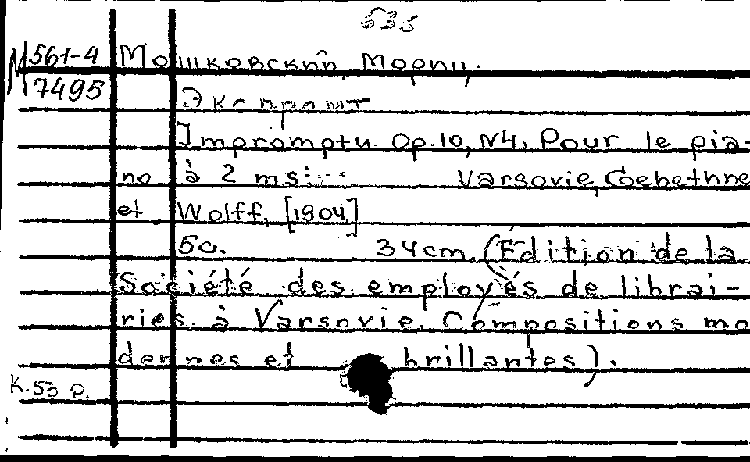 535
М 561-4 Мошковский, Мориц.
7495
Экспромт
Impromptu. Op.10, N4. Pour le pia-
no à 2 ms...  Varsovie, Gebethne
et Wolff, [1904]
5c. 34cm. (Edition de la
Société des employés de librai-
ries à Varsovie. Compositions mo
dernes et brillantes).
К.53 р.